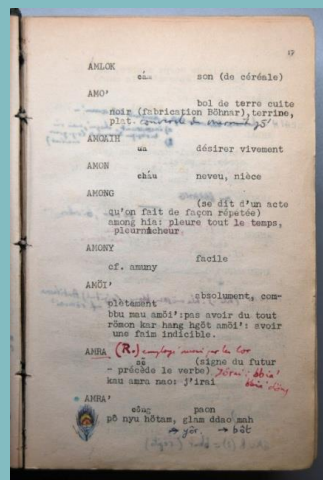 17
AMLOK
cám son (de céréale)
AMO'
bol de terre cuite
noir (fabrication Böhnar), terrine,
plat.
AMOAIH
ưa désirer vivement
AMON
cháu neveu, nièce
AMONG
(se dit d'un acte
qu'on fait de façon répétée)
among hia: pleure tout le temps,
pleurnicheur
AMONY
facile
cf. amuny
AMÖI'
absolument, com-
plètement
bbu mau amöi': pas avoir du tout
römon kar hang hgöt amöi': avoir
une faim indicible.
AMRA (R.) employé aussi par les
(signe du futur
- précède le verbe) Jörai: bbia'
kau amra nao: j'irai
AMRA'
công paon
pö nyu hötam, glam ddao mah
→ → böt